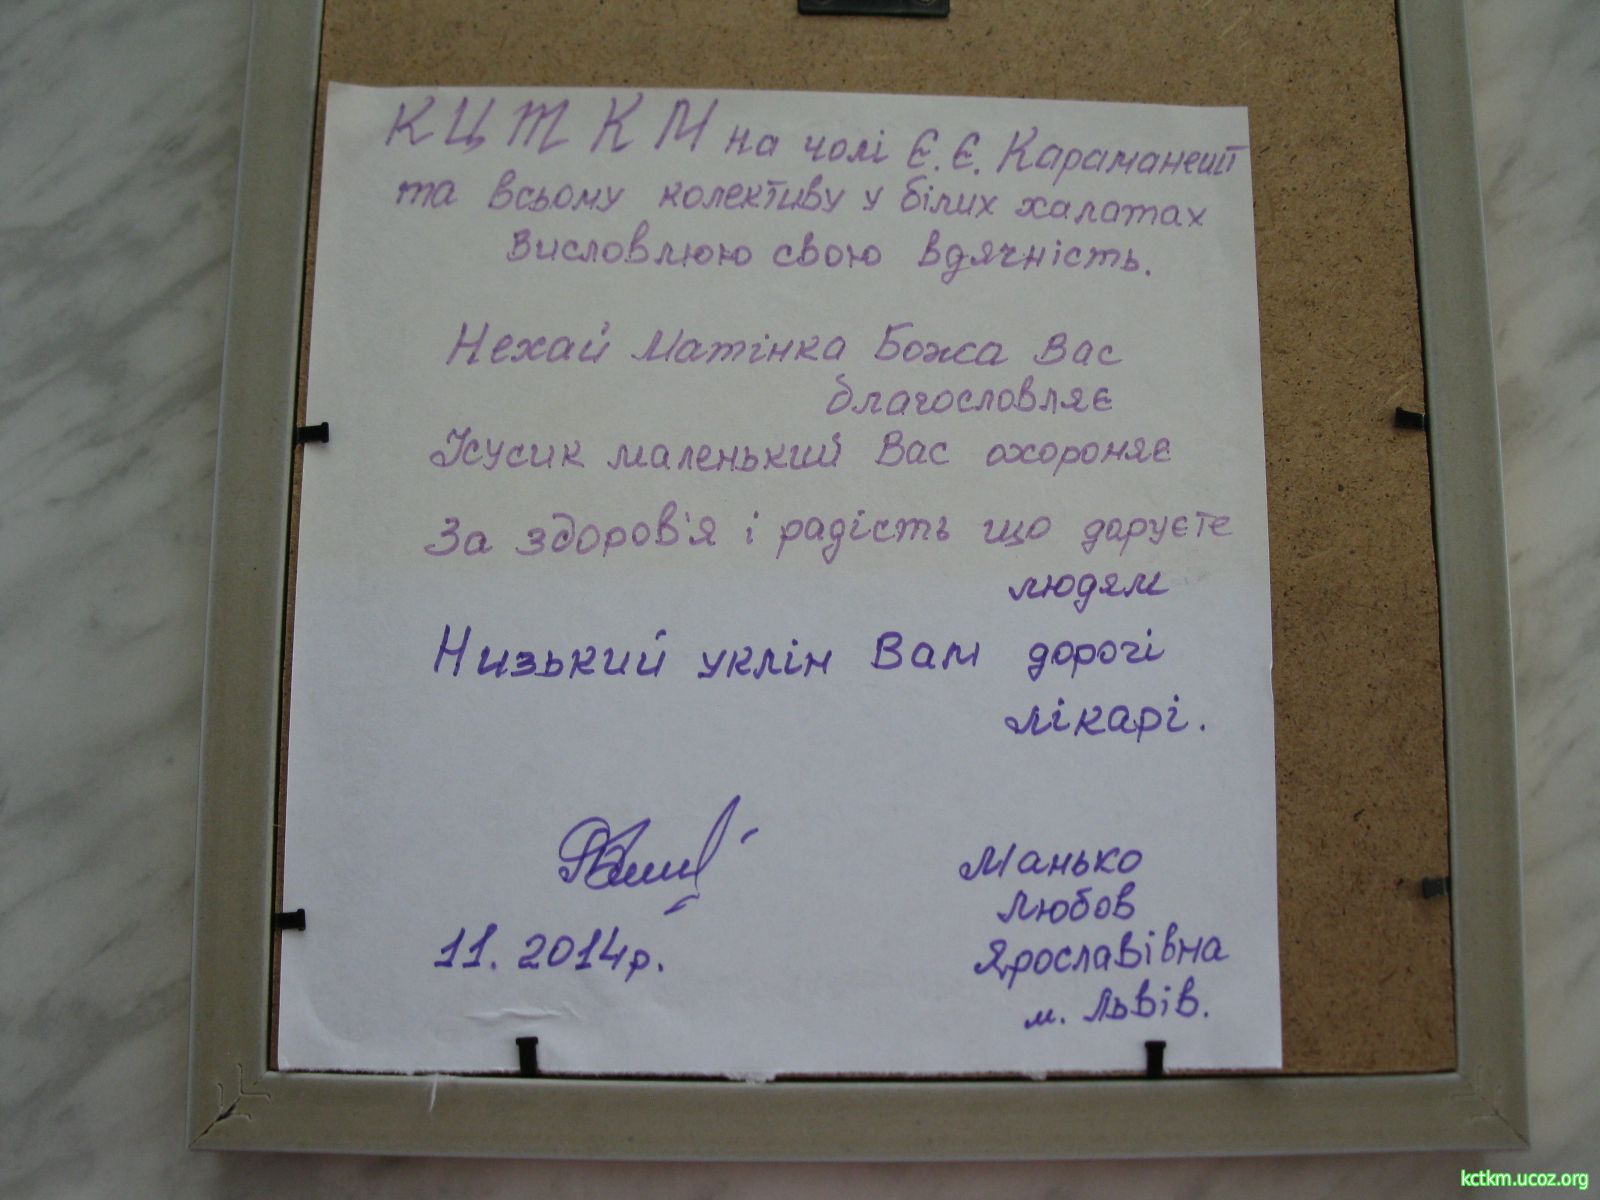 КЦТКМ на чолі Є.Є. Караманешт
та всьому колективу у білих халатах
Висловлюю свою вдячність.
Нехай Матінка Божа Вас
благословляє
Ісусик маленький Вас охороняє
За здоров'я і радість що даруєте
людям
Низький уклін Вам дорогі
лікарі.
Манько
Любов
11. 2014р.
Ярославівна
м. Львів.
kctkm.ucoz.org